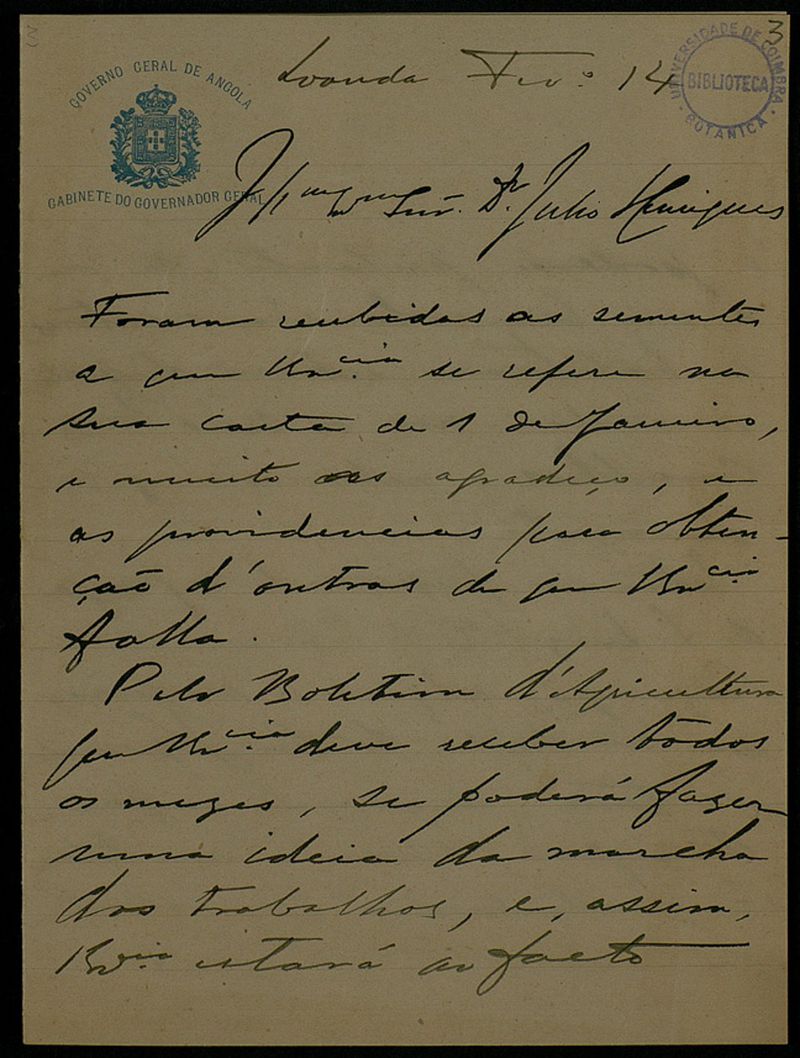 3
GOVERNO GERAL DE ANGOLA
GABINETE DO GOVERNADOR GERAL
UNIVERSIDADE DE COIMBRA
BIBLIOTECA
BOTANICA
Loanda Fevº 14
Snr. Dr Julio Henriques
Foram recebidas as sementes
a que V. Excia se refere na
sua carta de 1 de Janeiro,
e muito as agradeço, e
as providencias para obten-
ção d'outras de que V. Excia
falla.
Pelo Boletim d'Agricultura
que V. Excia deve receber todos
os mezes, se poderá fazer
uma ideia da marcha
dos trabalhos, e, assim,
V. Excia estará ao facto